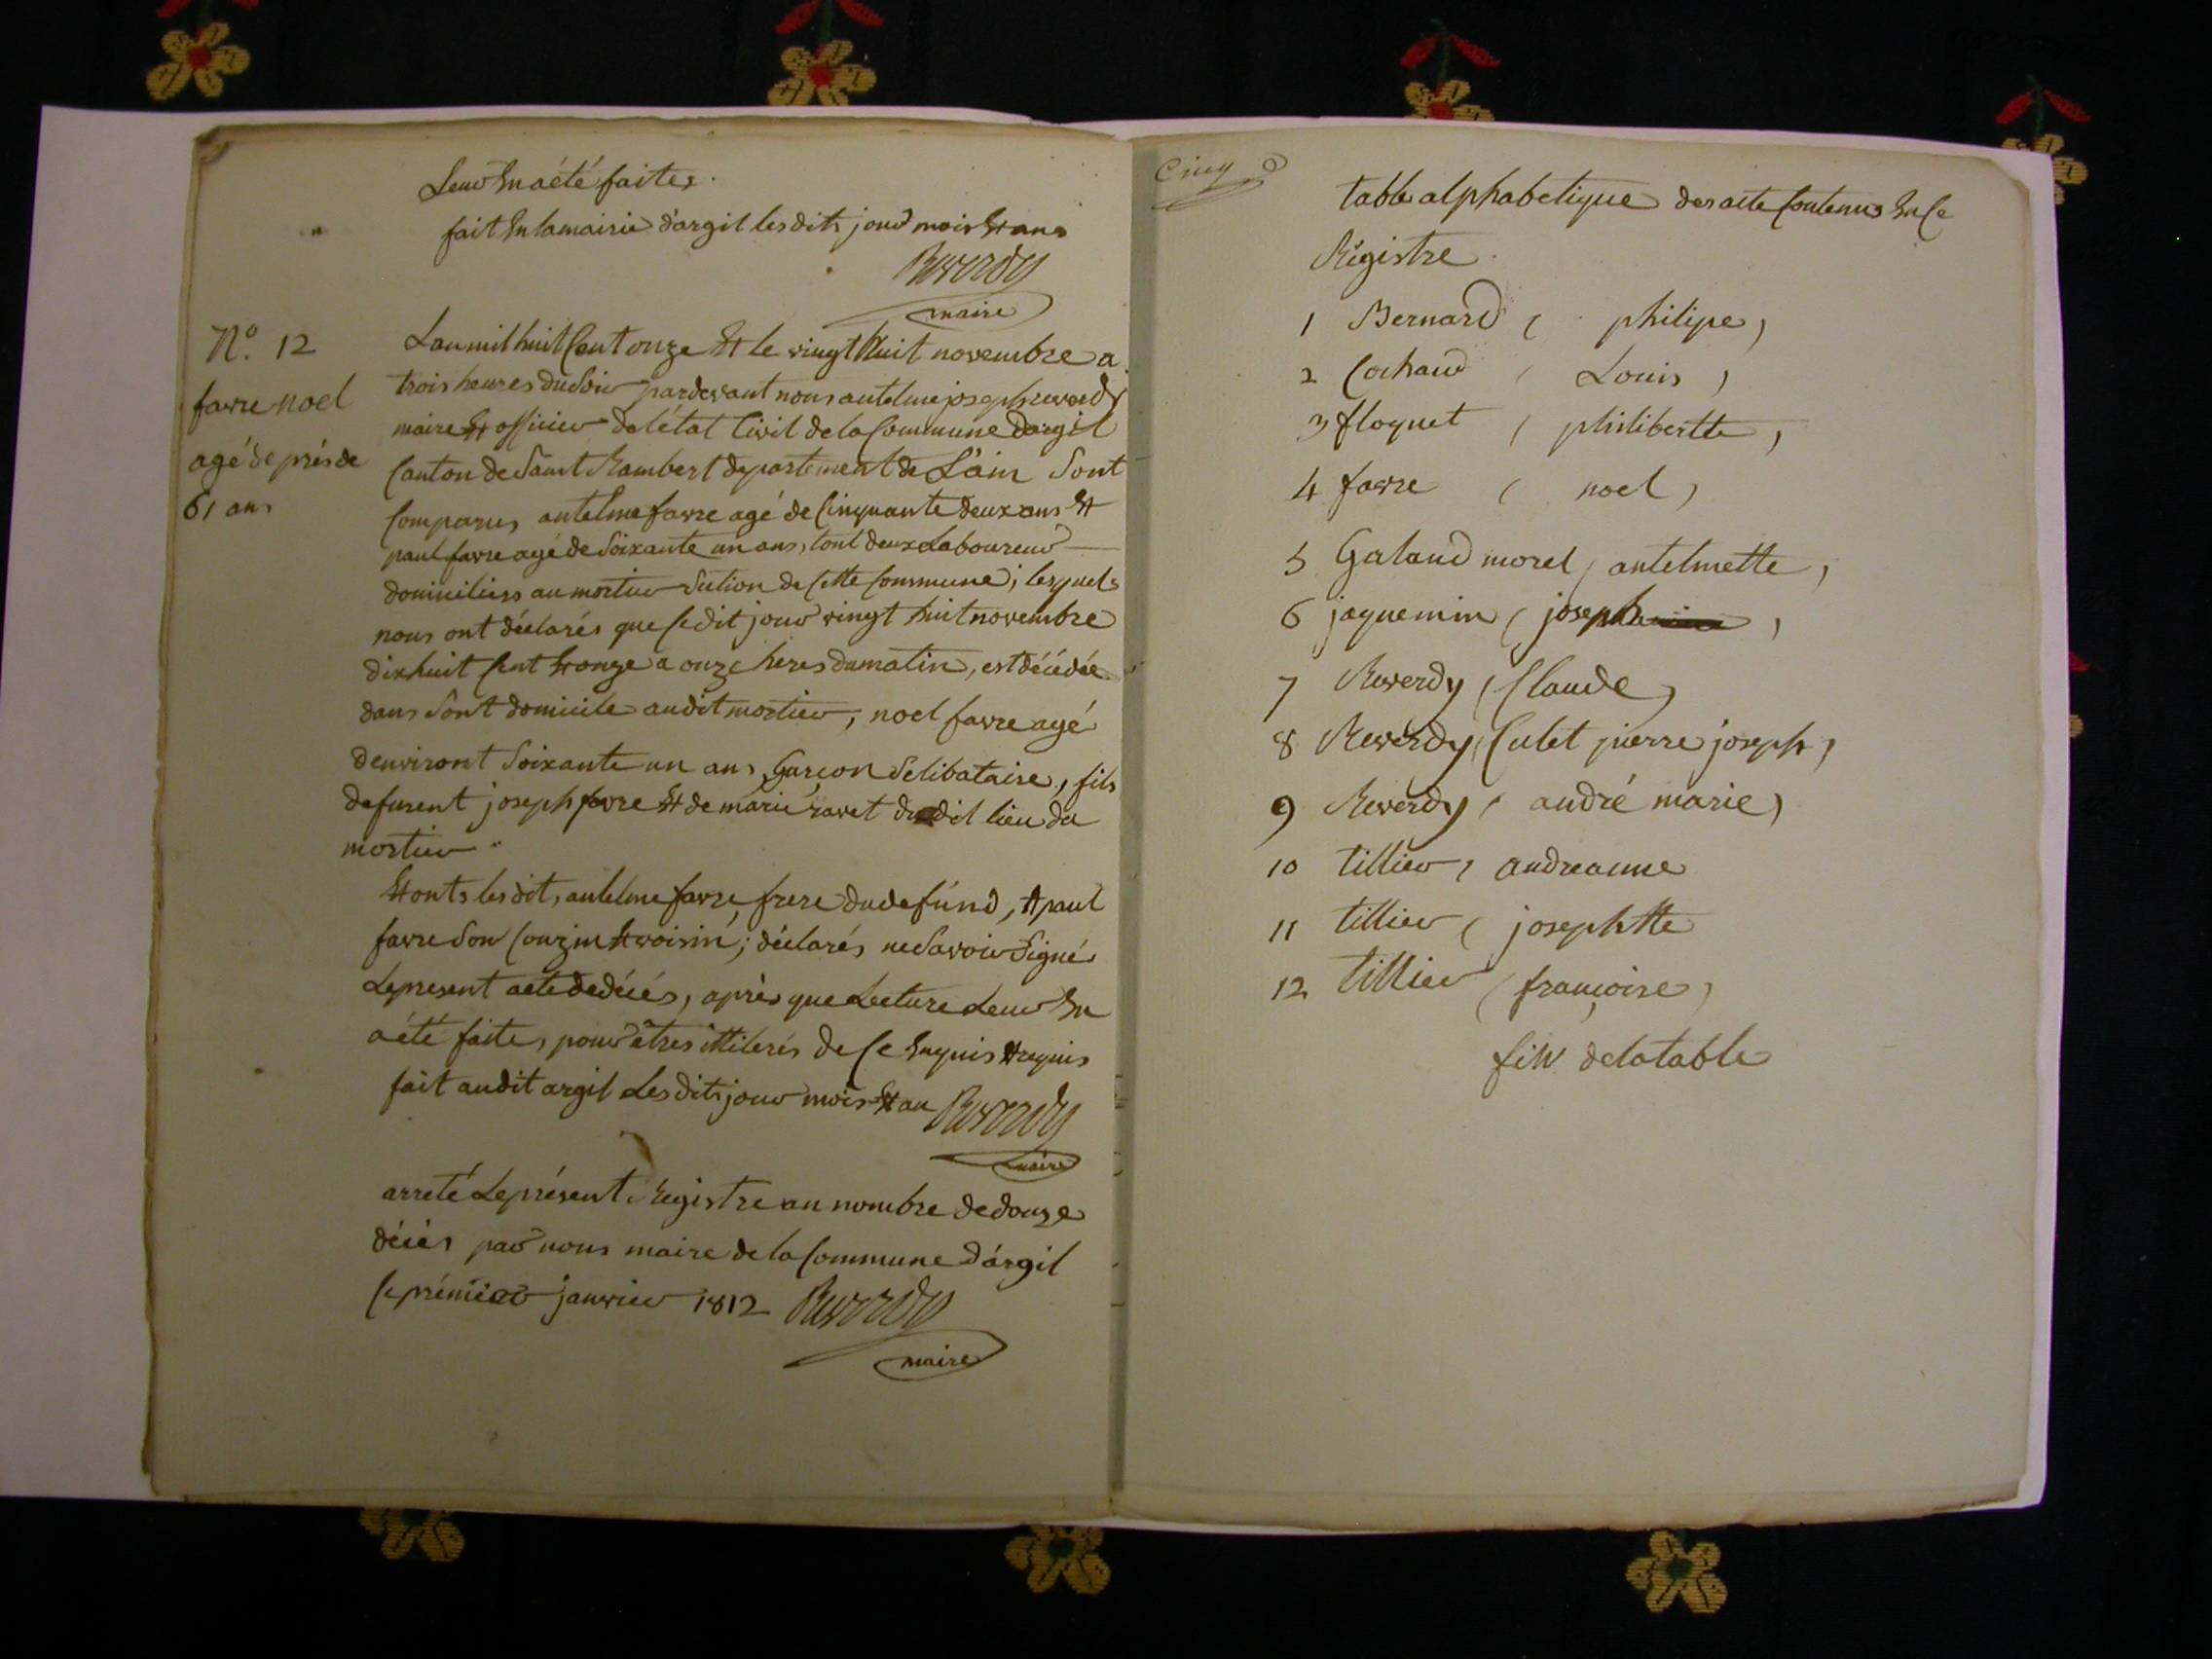 Leur En a été faites.
fait En la mairie d'argil les dits jour mois Et ans
Reverdy
maire
N.º 12
favre noel
agé de prés de
61 ans
L'an mil huit Cent onze Et le vingt huit novembre a
trois heures du Soir pardevant nous antelme joseph reverdy
maire Et officier de l'état Civil de la Commune dargil
Canton de Saint Rambert departement de L'ain Sont
Comparus antelme favre agé de Cinquante deux ans Et
paul favre agé de Soixante un ans, tout deux Laboureur
domiciliers au mortier Section de Cette Commune; lesquels
nous ont déclarés que Cedit jour vingt huit novembre
dixhuit Cent Et onze a onze heres du matin, est décédée
dans Sont domicile audit mortier, noel favre agé
denviront Soixante un ans Garçon Selibataire, fils
defurent joseph favre Et de marie ravet dudit lieu du
mortier
Et onts lesdit, antelme favre, frere du defúnd, Et paul
favre Son Couzin Et voisin; déclarés ne Savoir Signés
Le present acte de décés, après que Lecture Leur En
a été faite, pour êtres illiterés de Ce Enquis Et requis
fait audit argil Les dits jour mois Et an
Reverdy
maire
arreté Le présent Registre au nombre de douze
décés par nous maire de la Commune d'árgil
Ce prémier janvier 1812 Reverdy
maire
Cinq
table alphabetique des acte Contenus En Ce
Régistre.
1 Bernard ( philipe,
2 Cochand ( Louis,
3 floquet ( philibertte,
4 favre ( noel,
5 Galand morel, antelmette,
6 jaquemin ( joseph,
7 Reverdy ( Claude,
8 Reverdy, Culet pierre joseph,
9 Reverdy, andré marie,
10 tillier, andreanne
11 tillier ( josephtte
12 tillier ( françoise,
fin de la table